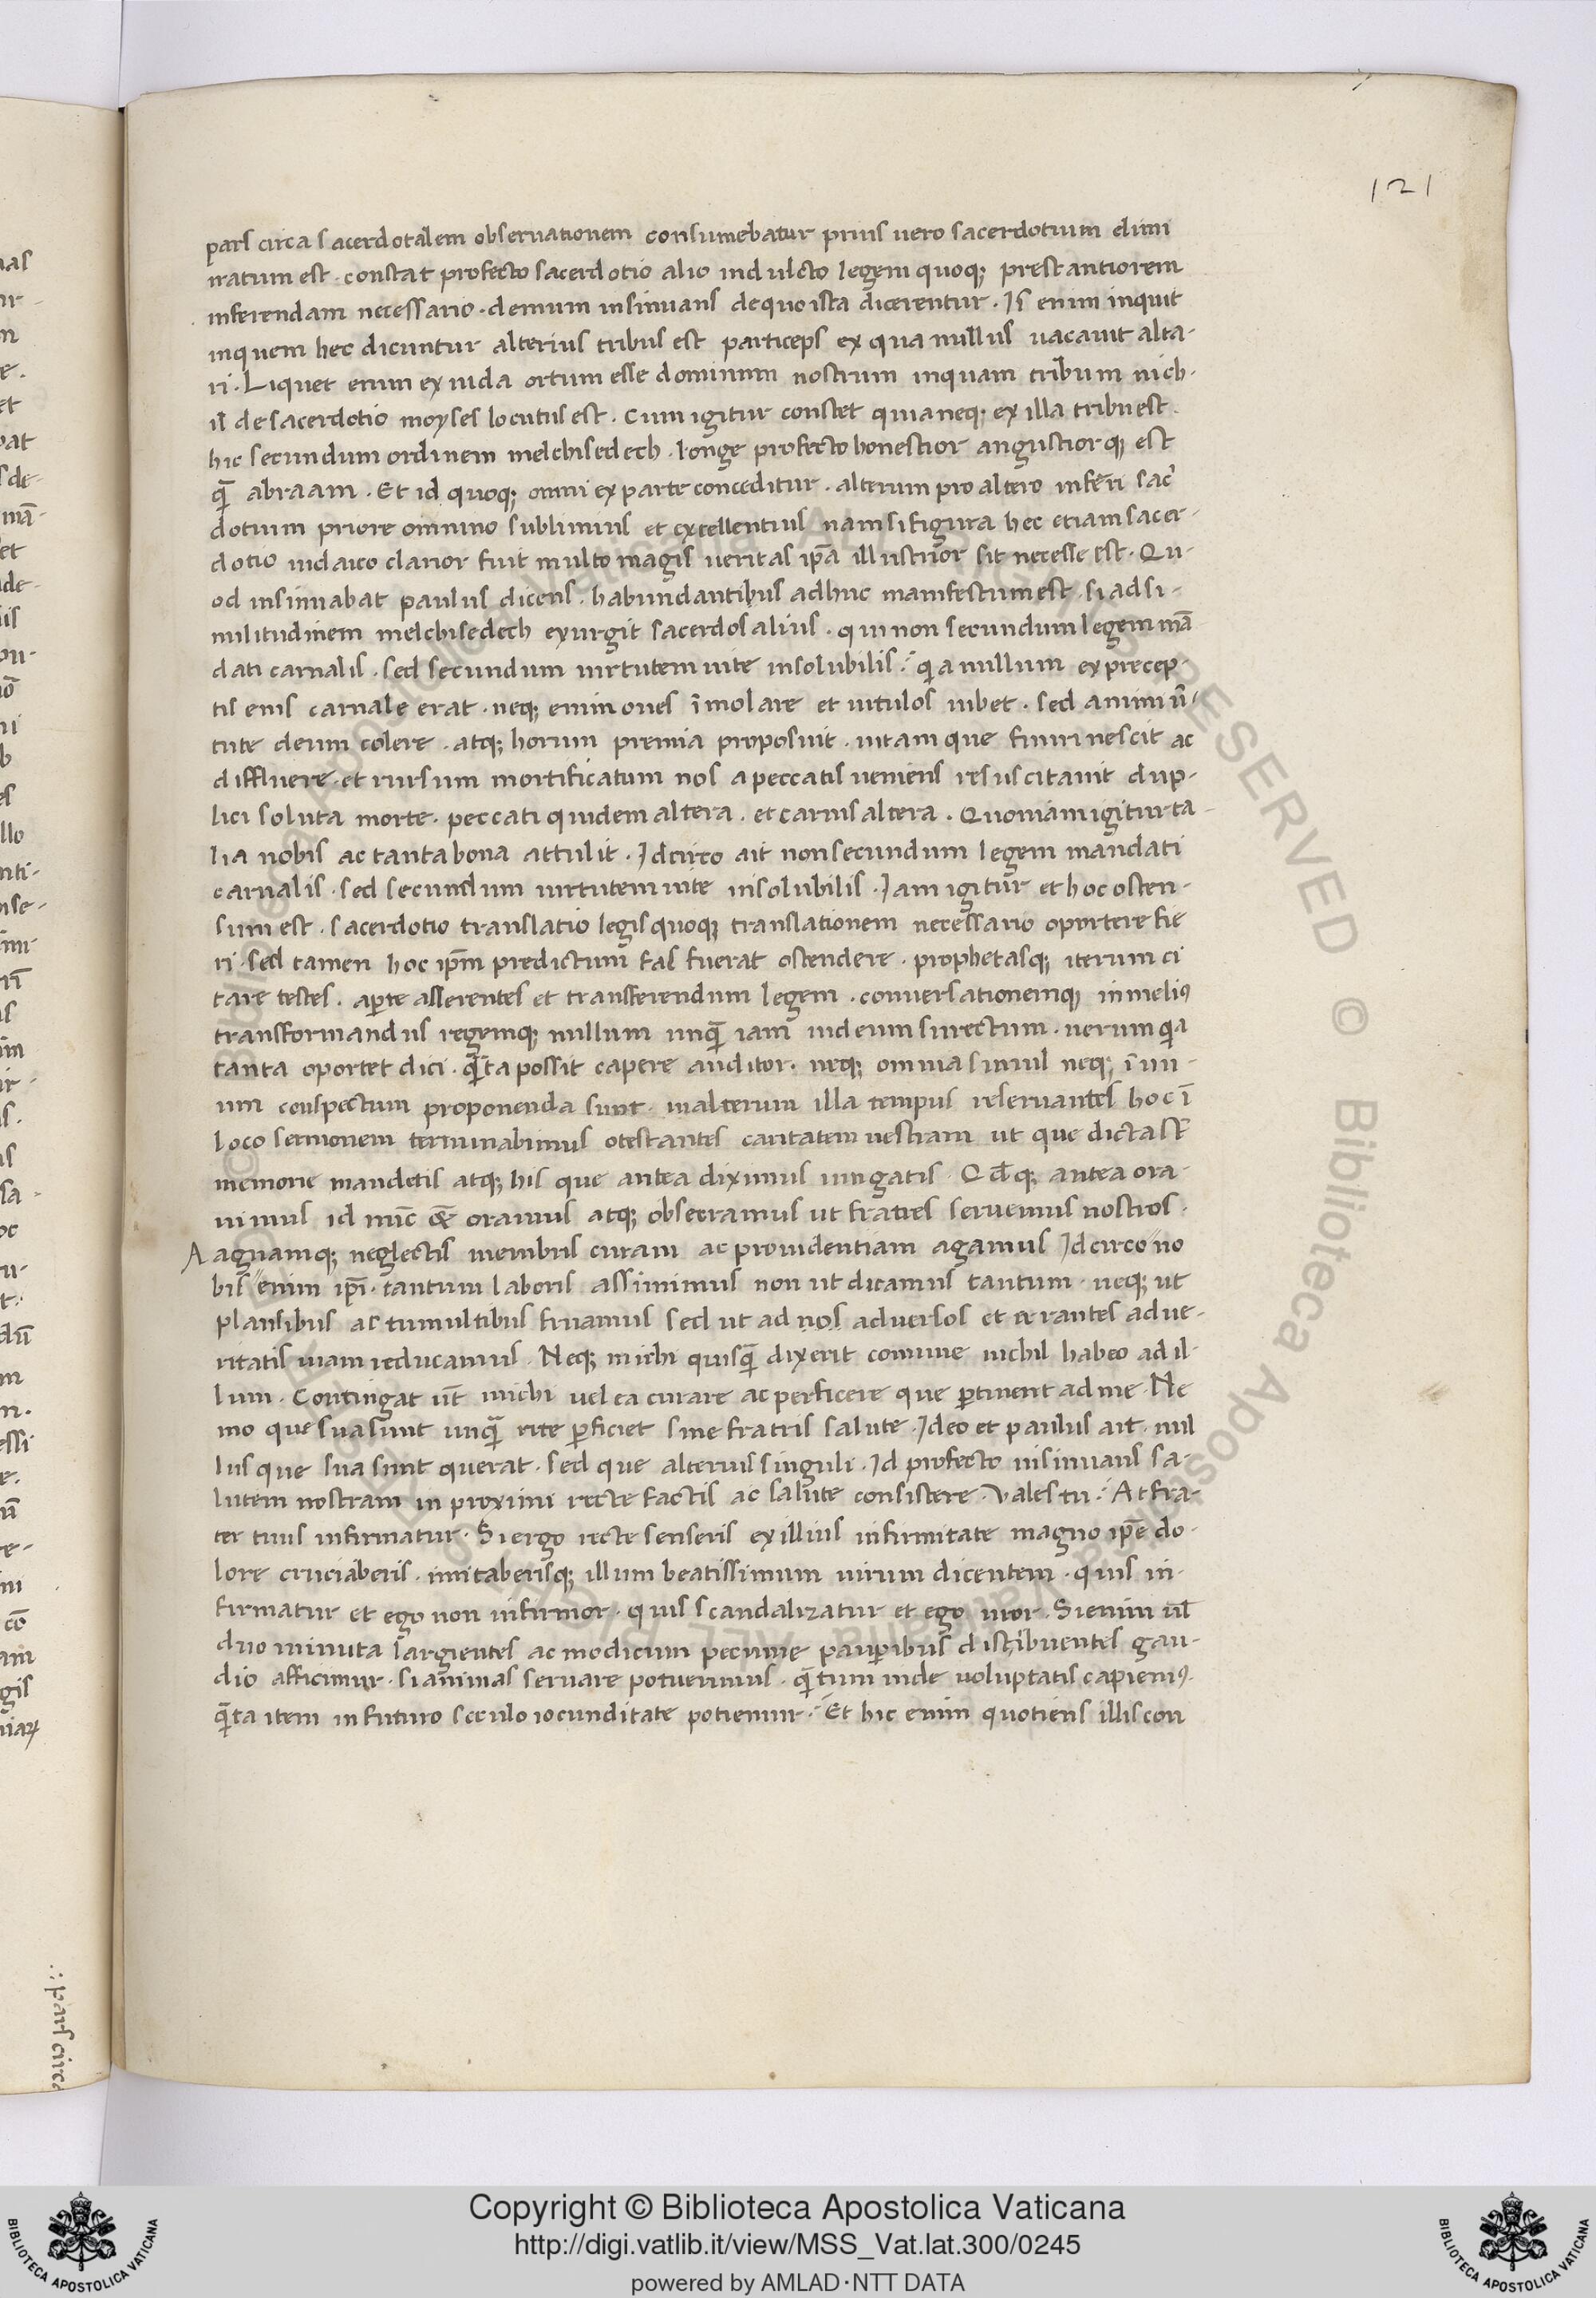 121
pars circa sacerdotalem obseruationem consumebatur prius uero sacerdotium elimi
natum est · constat profecto sacerdotio alio indulcto legem quoq; prestantiorem
inferendam necessario · demum insinuans dequo ista dicerentur · Is enim inquit
inquem hec dicuntur alterius tribus est particeps ex qua nullus uacauit alta-
ri · Liquet enim ex iuda ortum esse dominum nostrum inquam tribum nich-
il de sacerdotio moyses locutus est · Cum igitur constet quia neq; ex illa tribu est
hic secundum ordinem melchisedech · longe profecto honestior angustiorq; est
q̄ abraam · Et id quoq; omni ex parte conceditur · alterum pro altero inferri sac̉
dotium priore omnino sublimius et excellentius nam si figura hec etiam sacer-
dotio iudaico clarior fuit multo magis ueritas ip̄a illustrior sit necesse est · Qu-
od insinuabat paulus dicens · habundantibus adhuc manifestum est · si ad si-
militudinem melchisedech exurgit sacerdos alius · qui non secundum legem mā
dati carnalis · sed secundum uirtutem uite insolubilis ·̓ qia nullum ex precep-
tis eius carnale erat · neq; enim oues īmolare et uitulos iubet · sed animi uir̄
tute deum colere · atq; horum premia proposuit · uitam que finiri nescit ac
diffluere · et rursum mortificatum nos a peccatis ueniens resuscitauit dup-
lici soluta morte · peccati quidem altera · et carnis altera · Quoniam igitur ta
lia nobis ac tanta bona attulit · Idcirco ait non secundum legem mandati
carnalis · sed secundum uirtutem uite insolubilis · Iam igitur et hoc osten-
sum est · sacerdotio translatio legis quoq; translationem necessario oportere fie
ri · sed tamen hoc ip̄m predictum fas fuerat ostendere · prophetasq; iterum ci
tare testes · ap̱te asserentes et transferendum legem · conuersationemq; in melius
transformandus regemq; nullum unq̄ iam iudeum surrectum · uerum qia
tanta oportet dici · q̄ta possit capere auditor · neq; omnia simul neq; ī un-
um conspectum proponenda sunt · in alterum illa tempus reseruantes hoc ī
loco sermonem terminabimus otestantes caritatem uestram ut que dicta st̄
memorie mandetis atq; his que antea diximus iungatis · Qd̄q; antea ora-
uimus id nūc &̄ oramus atq; obsecramus ut fratres seruemus nostros ·
A agnamq; neglectis membris curam ac prouidentiam agamus Idcirco no
bis enim ip̄i · tantum laboris assūmimus non ut dicamus tantum · neq; ut
plausibus ac tumultibus fruamus sed ut ad nos aduersos et errantes ad ue-
ritatis uiam reducamus · Neq; michi quisq̄ dixerit comune nichil habeo ad il-
lum · Contingat ut̄ michi uel ea curare ac perficere que p̱tinent ad me · Ne
mo que sua sunt unq̄ rite p̱ficiet sine fratris salute · Ideo et paulus ait · nul
lus que sua sunt querat · sed que alterius singuli · Id profecto insinuans sa-
lutem nostram in proximi recte factis ac salute consistere · Vales tu ·̓ At fra-
ter tuus infirmatur · Si ergo recte senseris ex illius infirmitate magno ip̄e do-
lore cruciaberis · imitaberisq; illum beatissimum uirum dicentem · quis in-
firmatur et ego non infirmor · quis scandalizatur et ego uror · Si enim ul̄
duo minuta largientes ac modicum pecunie paup̱ibus distribuentes gau-
dio afficimur · si animas seruare potuerimus · q̄tum inde uoluptatis capiemus ·
q̄ta item in futuro seculo iocunditate potiemur ·̓ Et hic enim quotiens illis con
Copyright © Biblioteca Apostolica Vaticana
http://digi.vatlib.it/view/MSS_Vat.lat.300/0245
powered by AMLAD·NTT DATA